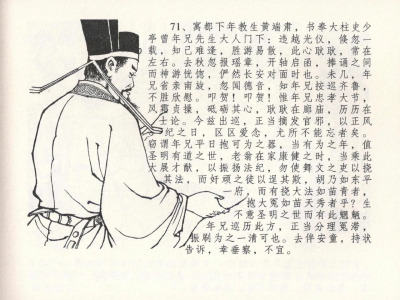 71、寓都下年教生黄端肃，书奉大柱史少
亭曾年兄先生大人门下：违越光仪，倏忽一
载，知己难逢，胜游易散，此心耿耿，常在
左右。去秋忽报瑶章，开轴启函，捧诵之间
而神游恍惚，俨然长安对面时也。未几，年
兄省亲南旋，忽闻德音，知年兄按巡齐鲁，
不胜欣慰。叩贺！叩贺！惟年兄忠孝大节，
风霜贞操，砥砺其心，耿耿在廊庙，历历在
士论。今兹出巡，正当摘发官邪，以正风
纪之日，区区爱念，尤所不能忘者矣。
窃谓年兄平日抱可为之器，当有为之年，值
圣明有道之世，老翁在家康健之时，当乘此
大展才猷，以振扬法纪，勿使舞文之吏以挠
其法，而奸顽之徒以逞其欺，胡乃如东平
一府，而有挠大法如苗青者，
抱大冤如苗天秀者乎？生
不意圣明之世而有此魍魉。
年兄巡历此方，正当分理冤滞，
振刷为之一清可也。去伴安童，持状
告诉，幸垂察，不宜。